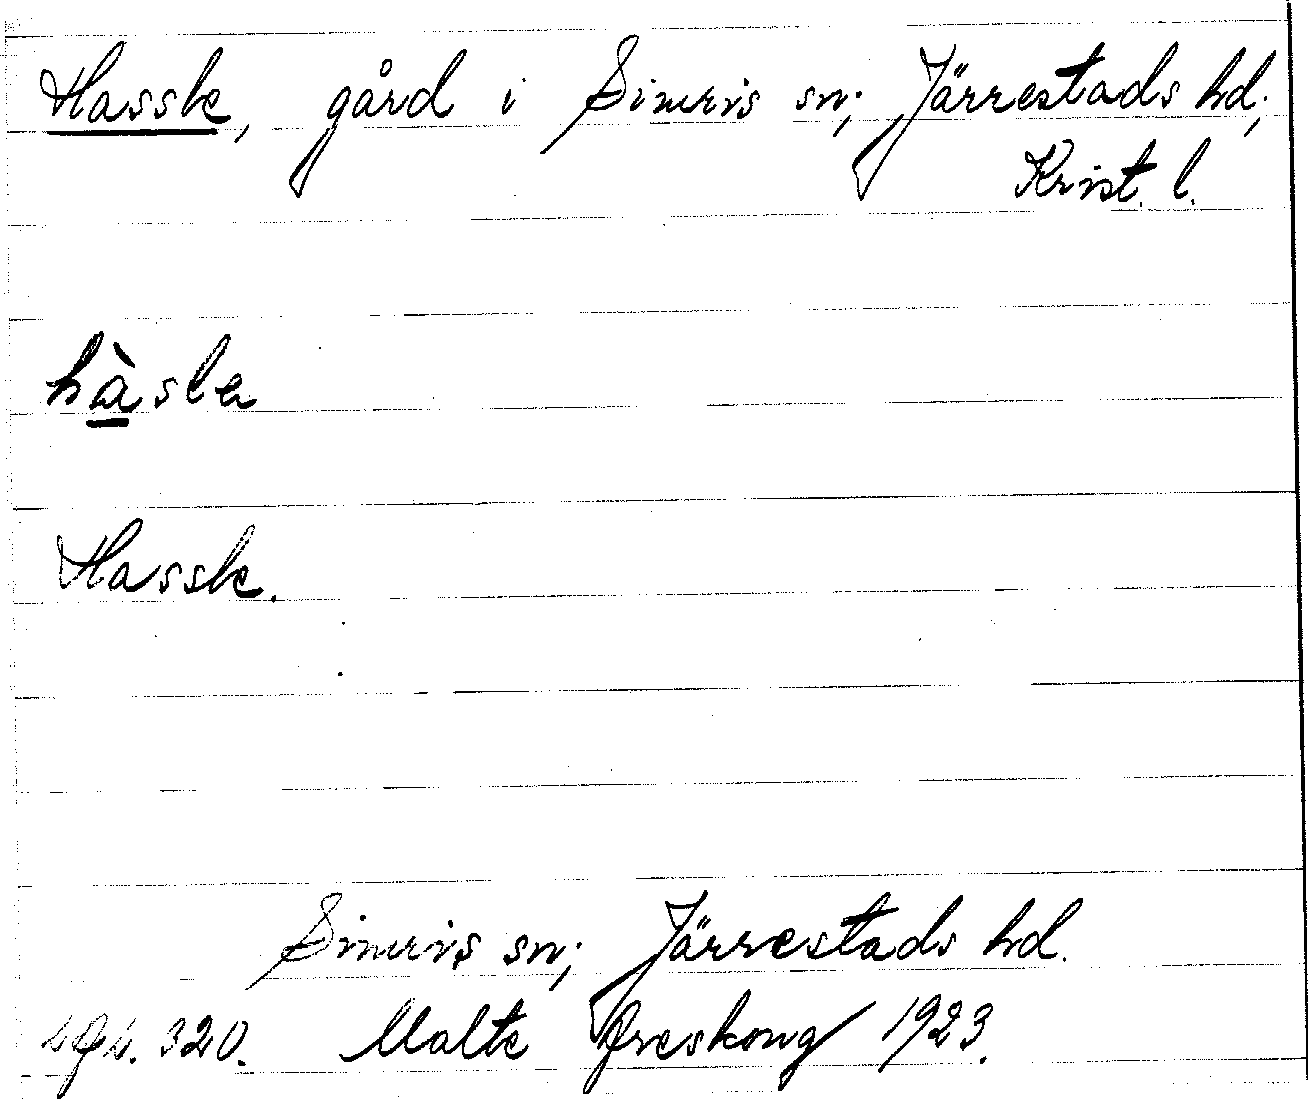 Hassle, gård i Simris sn; Järrestads hd;
Krist. l.
hàsla
Hassle.
Simris sn; Järrestads hd.
sgn. 320. Malte Areskoug 1923.